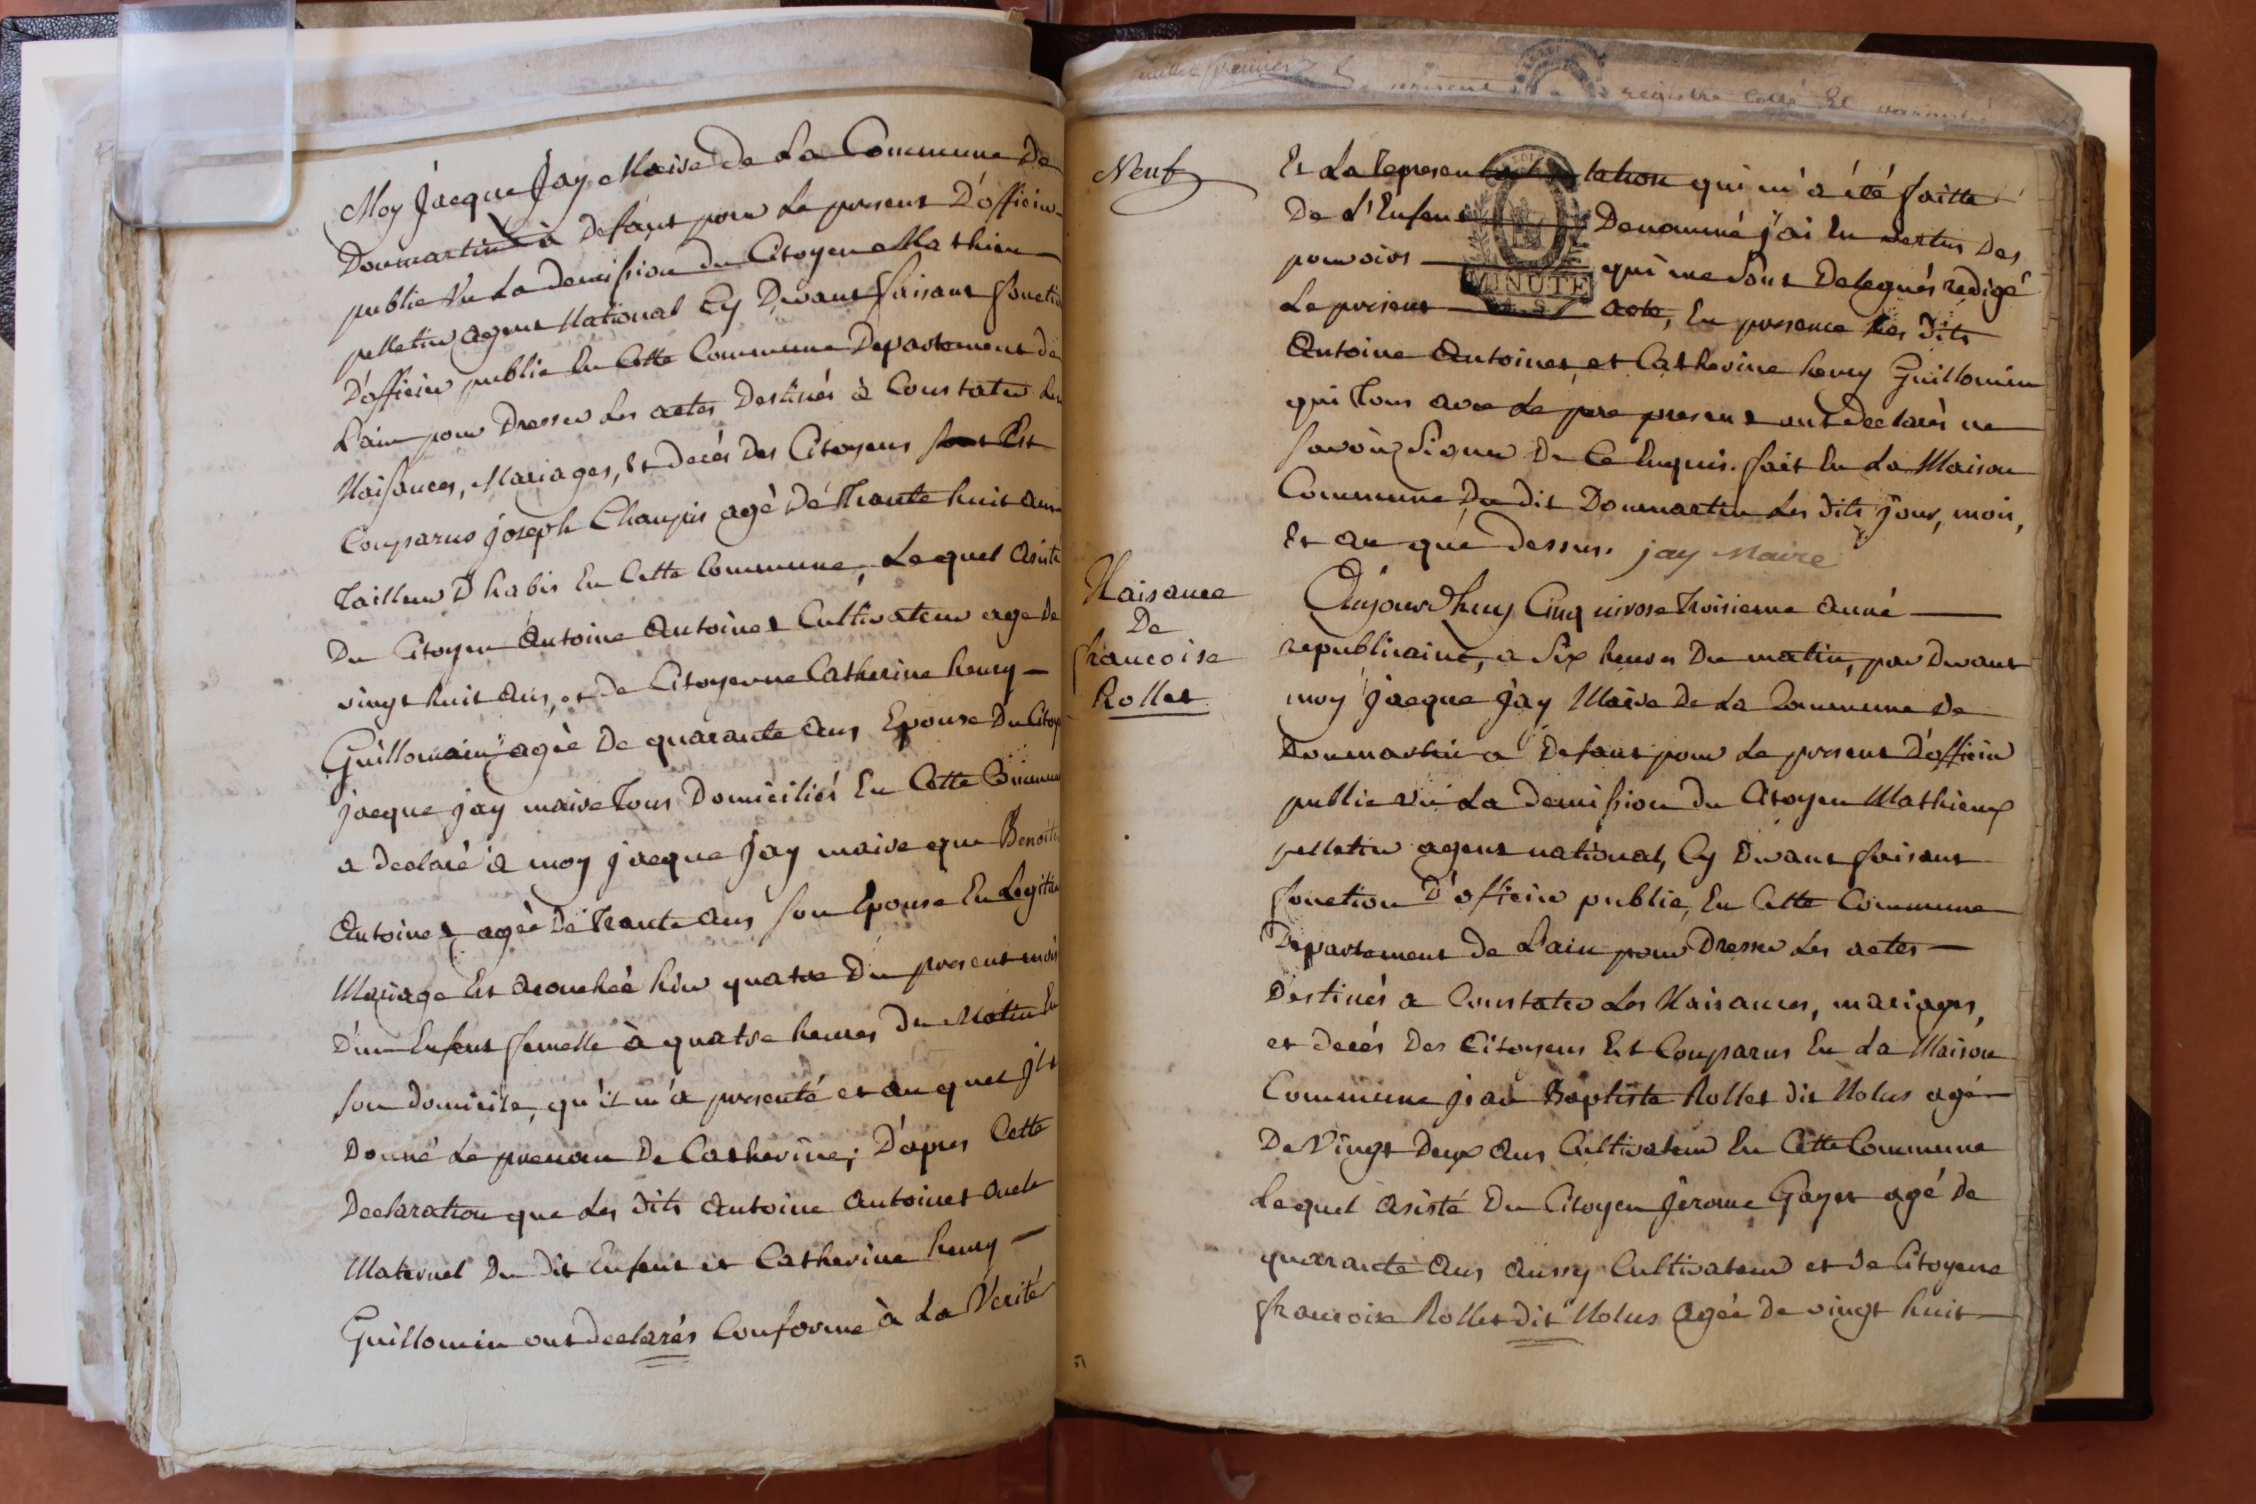 Moy jacque jay Maire de La Commune De
Dommartin à defaut pour Le present D'officier
public vu La demission du Citoyen Mathieu
pelletier agent National Cy Devant faisant fonctio
D'officier public En Cette Commune Departement de
L'ain pour Dresser Les actes Destinés à Constater Les
Naissances, Mariages, et decés Des Citoyens Est
Comparus joseph Chaupis agé De Trante huit ans
Tailleur D'habis En Cette Commune, Lequel Asisté
Du Citoyen Antoine Antoinet Cultivateur age de
vingt huit ans, et de Citoyenne Catherine henry —
Guillomain agée De quarante Ans Epouse Du Citoy
jacque jay maire Tous Domiciliés En Cette Commune
a declaré à moy jacque jay maire que Benoite
Antoinet agée De Trante Ans son Epouse En Legitim
Mariage Est acouchée hier quatre Du present mois
D'un Enfent femelle à quatre heures Du Matin En
son domicile, qu'il m'a presenté et au quel jl a
Donné Le prenom De Catherine; D'apres Cette
Declaration que Les Dits Antoine Antoinet oncle
Maternel Du Dit Enfent et Catherine henry —
Guillomin ont declarés Conforme à La Verité
feuillet premier
present registre Cotté Et
Neuf
Et La representation qui m'a été faitte
De L'Enfent Denommé j'ai En vertus Des
pouvoirs qui me sont Delegués redigé
Le present acte, En presence Des Dits
Antoine Antoinet, et Catherine henry Guillomin
qui Tous avec Le pere present ont declarés ne
savoir Signer De Ce Enquis. fait En La Maison
Commune Du dit Dommartin Les dits jour, mois,
Et an que dessus. jay Maire
Naisance
De
francoise
Rollet
Aujourdhuy Cinq nivose Troisieme anné —
republicaine, a Six heures Du matin, par Devant
moy jacque jay Maire De La Commune De
Dommartin a Defaut pour Le present D'officier
public vu La demission du Citoyen Mathieux
pelletier agent national, Cy Devant faisant
fonction D'officier public, En Cette Commune
Departement De L'ain pour Dresser Les actes —
Destinés a Constater Les Naisances, mariages,
et decés Des Citoyens Est Comparus En La Maison
Commune jean Baptiste Rollet dit Nolus agé
De Vingt Deux Ans Cultivateur En Cette Commune
Lequel Asisté Du Citoyen jerome Gayet agé De
quarante Ans Aussy Cultivateur et De Citoyene
francoise Rollet dit Nolus agée De vingt huit —
MINUTE